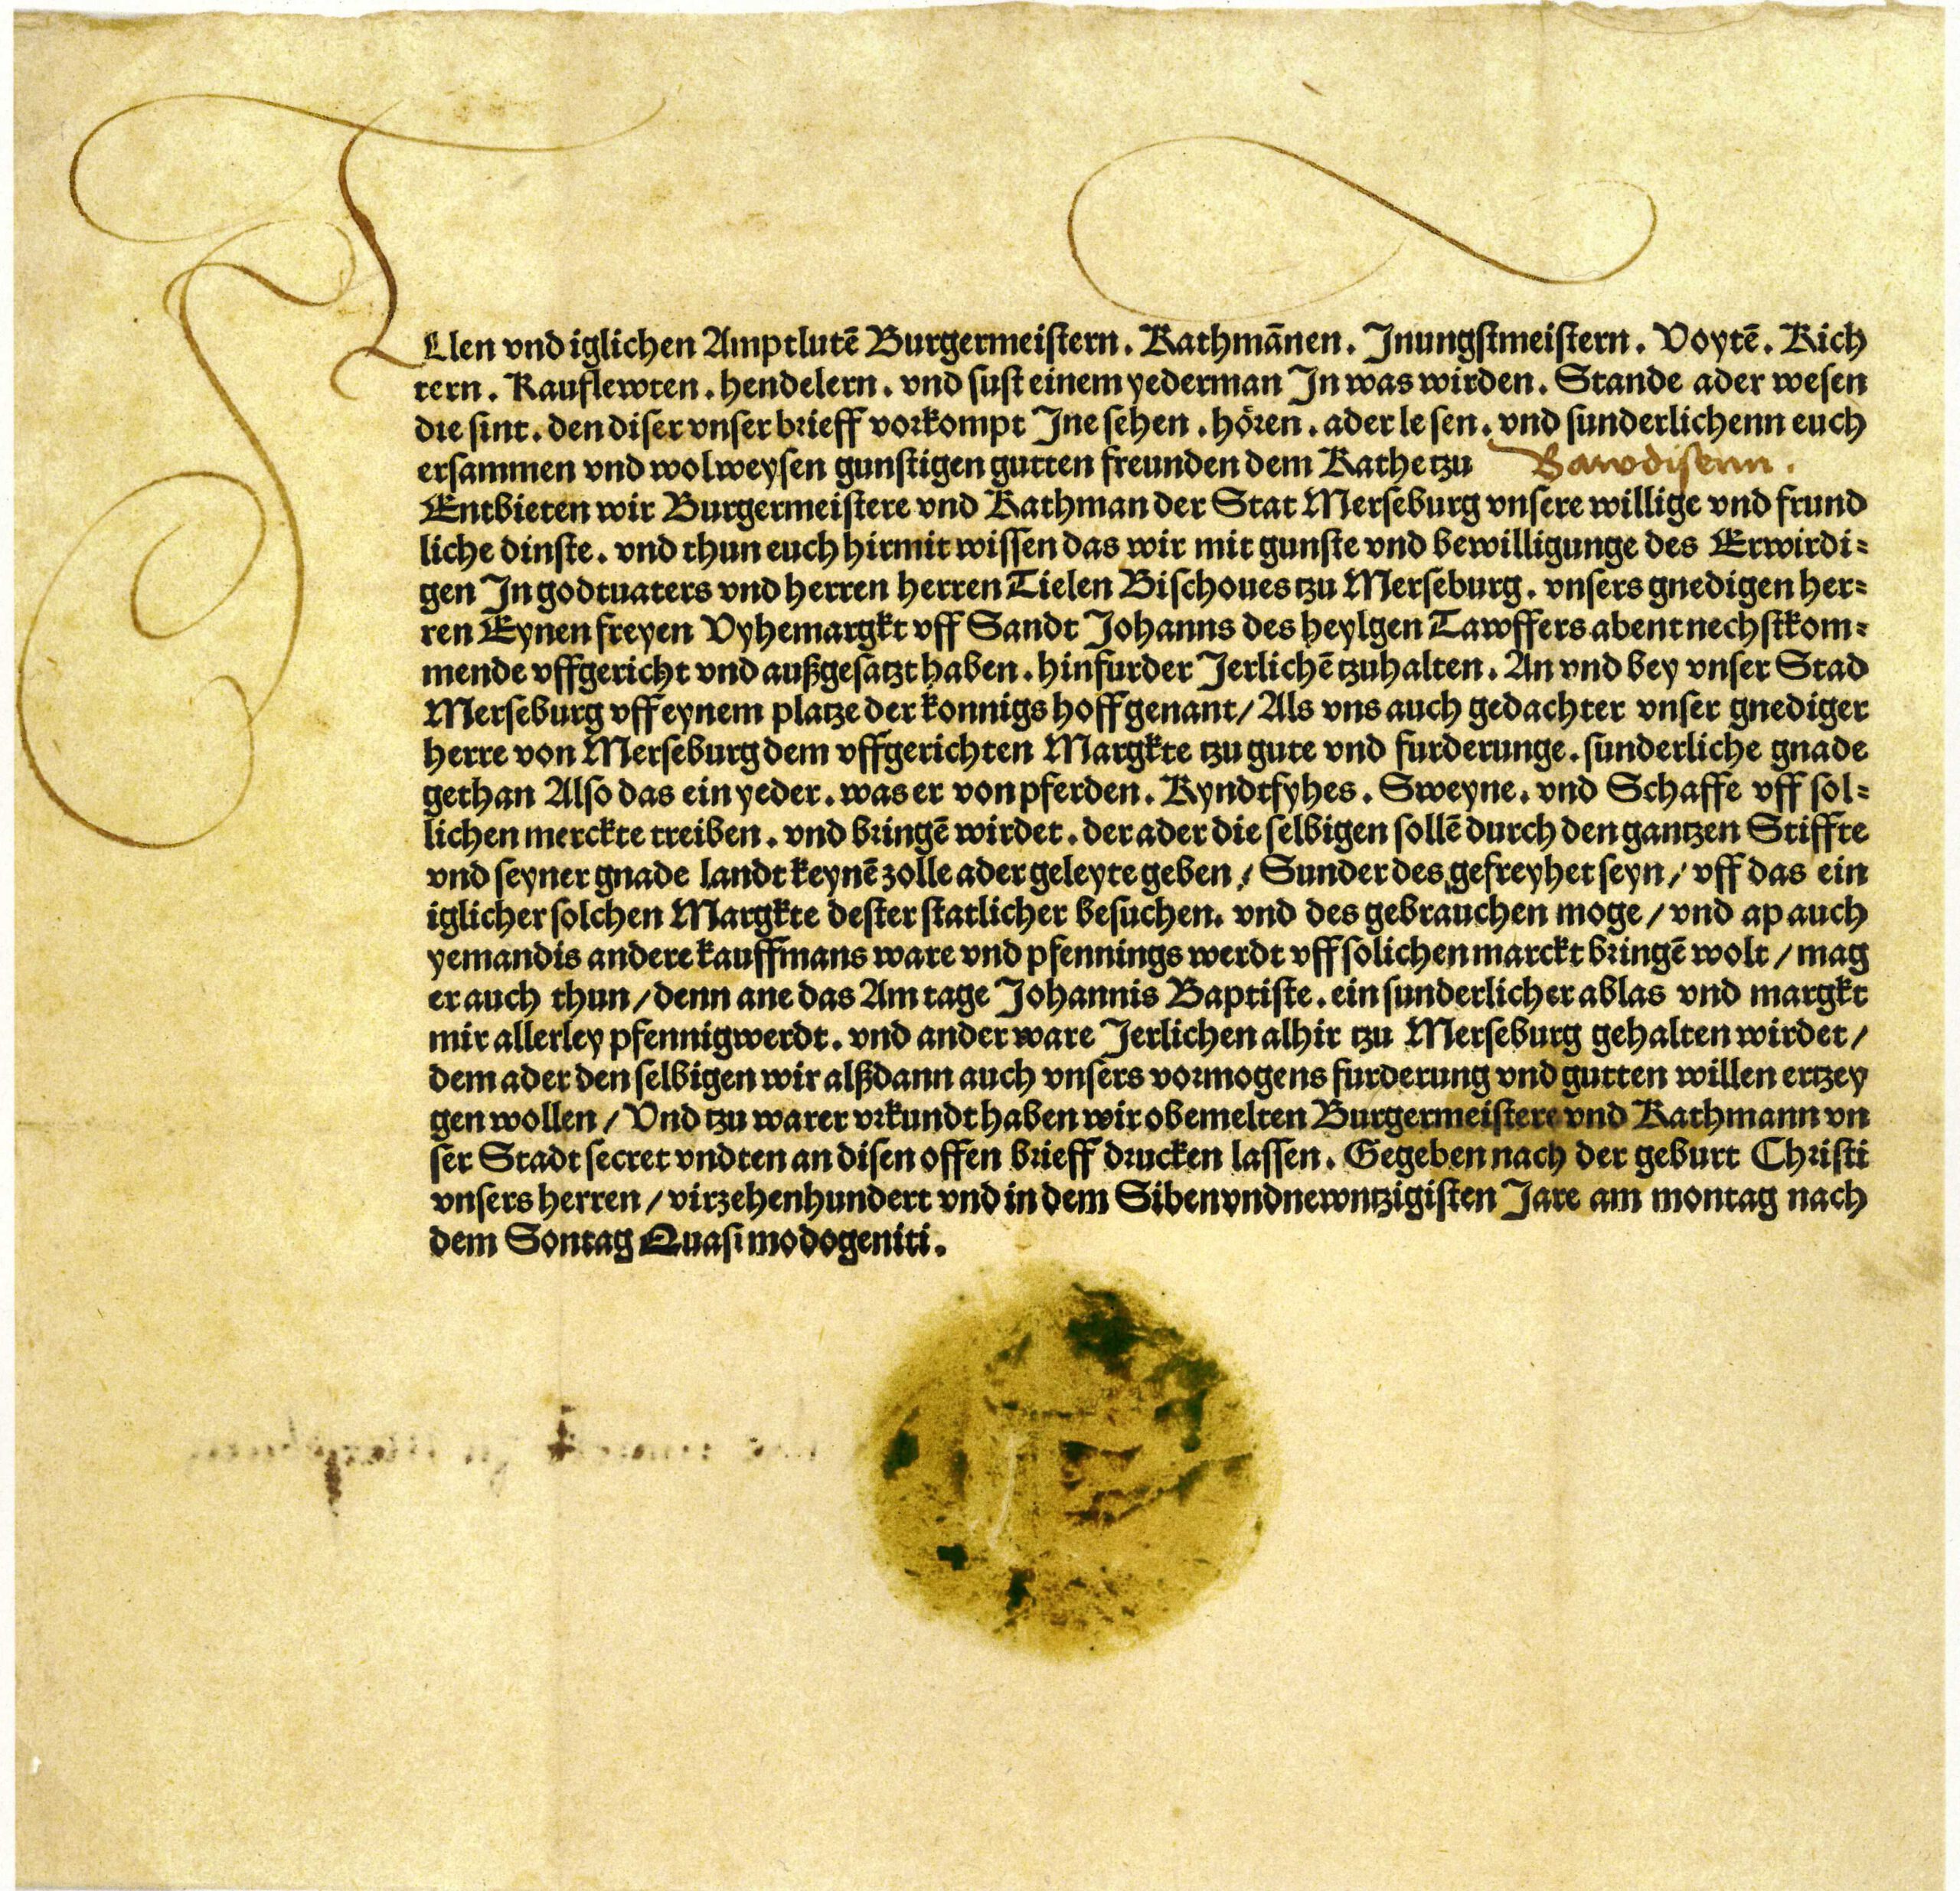 Allen vnd iglichen Amptlutē Burgermeistern. Rathmānen. Jnungstmeistern. Voytē. Rich
tern. Kauflewten. hendelern. vnd sust einem yederman Jn was wirden. Stande ader wesen
die sint. den diser vnser brieff vorkompt Jne sehen. hören. ader le sen. vnd sunderlichenn euch
ersammen vnd wolweysen gunstigen gutten freunden dem Rathe tzu Bawdisenn.
Entbieten wir Burgermeistere vnd Rathman der Stat Merseburg vnsere willige vnd frund
liche dinste. vnd thun euch hirmit wissen das wir mit gunste vnd bewilligunge des Erwirdi⸗
gen Jn godtuaters vnd herren herren Tielen Bischoues tzu Merseburg. vnsers gnedigen her⸗
ren Eynen freyen Vyhemargkt vff Sandt Johanns des heylgen Tawffers abent nechstkom⸗
mende vffgericht vnd außgesatzt haben. hinfurder Jerlichē tzuhalten. An vnd bey vnser Stad
Merseburg vff eynem platze der konnigs hoff genant/ Als vns auch gedachter vnser gnediger
herre von Merseburg dem vffgerichten Margkte tzu gute vnd furderunge. sunderliche gnade
gethan Also das ein yeder. was er von pferden. Ryndtfyhes. Sweyne. vnd Schaffe vff sol⸗
lichen merckte treiben. vnd bringē wirdet. der ader die selbigen sollē durch den gantzen Stiffte
vnd seyner gnade landt keynē zolle ader geleyte geben/ Sunder des gefreyhet seyn/ vff das ein
iglicher solchen Margkte dester statlicher besuchen. vnd des gebrauchen moge/ vnd ap auch
yemandis andere kauffmans ware vnd pfennings werdt vff solichen marckt bringē wolt/ mag
er auch thun/ denn ane das Am tage Johannis Baptiste. ein sunderlicher ablas vnd margkt
mit allerley pfennigwerdt. vnd ander ware Jerlichen alhir tzu Merseburg gehalten wirdet/
dem ader den selbigen wir alßdann auch vnsers vormogens furderung vnd gutten willen ertzey
gen wollen/ Vnd tzu warer vrkundt haben wir obemelten Burgermeistere vnd Rathmann vn
ser Stadt secret vndten an disen offen brieff drucken lassen. Gegeben nach der geburt Christi
vnsers herren/ virzehenhundert vnd in dem Sibenvndnewntzigisten Jare am montag nach
dem Sontag Quasimodogeniti.